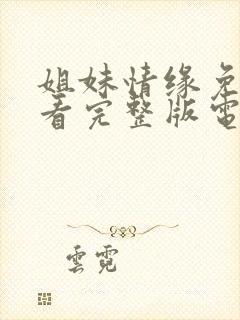 姐妹情缘免
看完整版電
雲霓